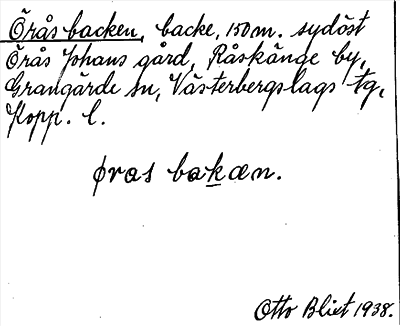 Örås backen, backe, 150 m. sydöst
Örås Johans gård, Råskänge by,
Grangärde sn, Västerbergslags tg,
Kopp. l.
øras bakæn.
Otto Blixt 1938.